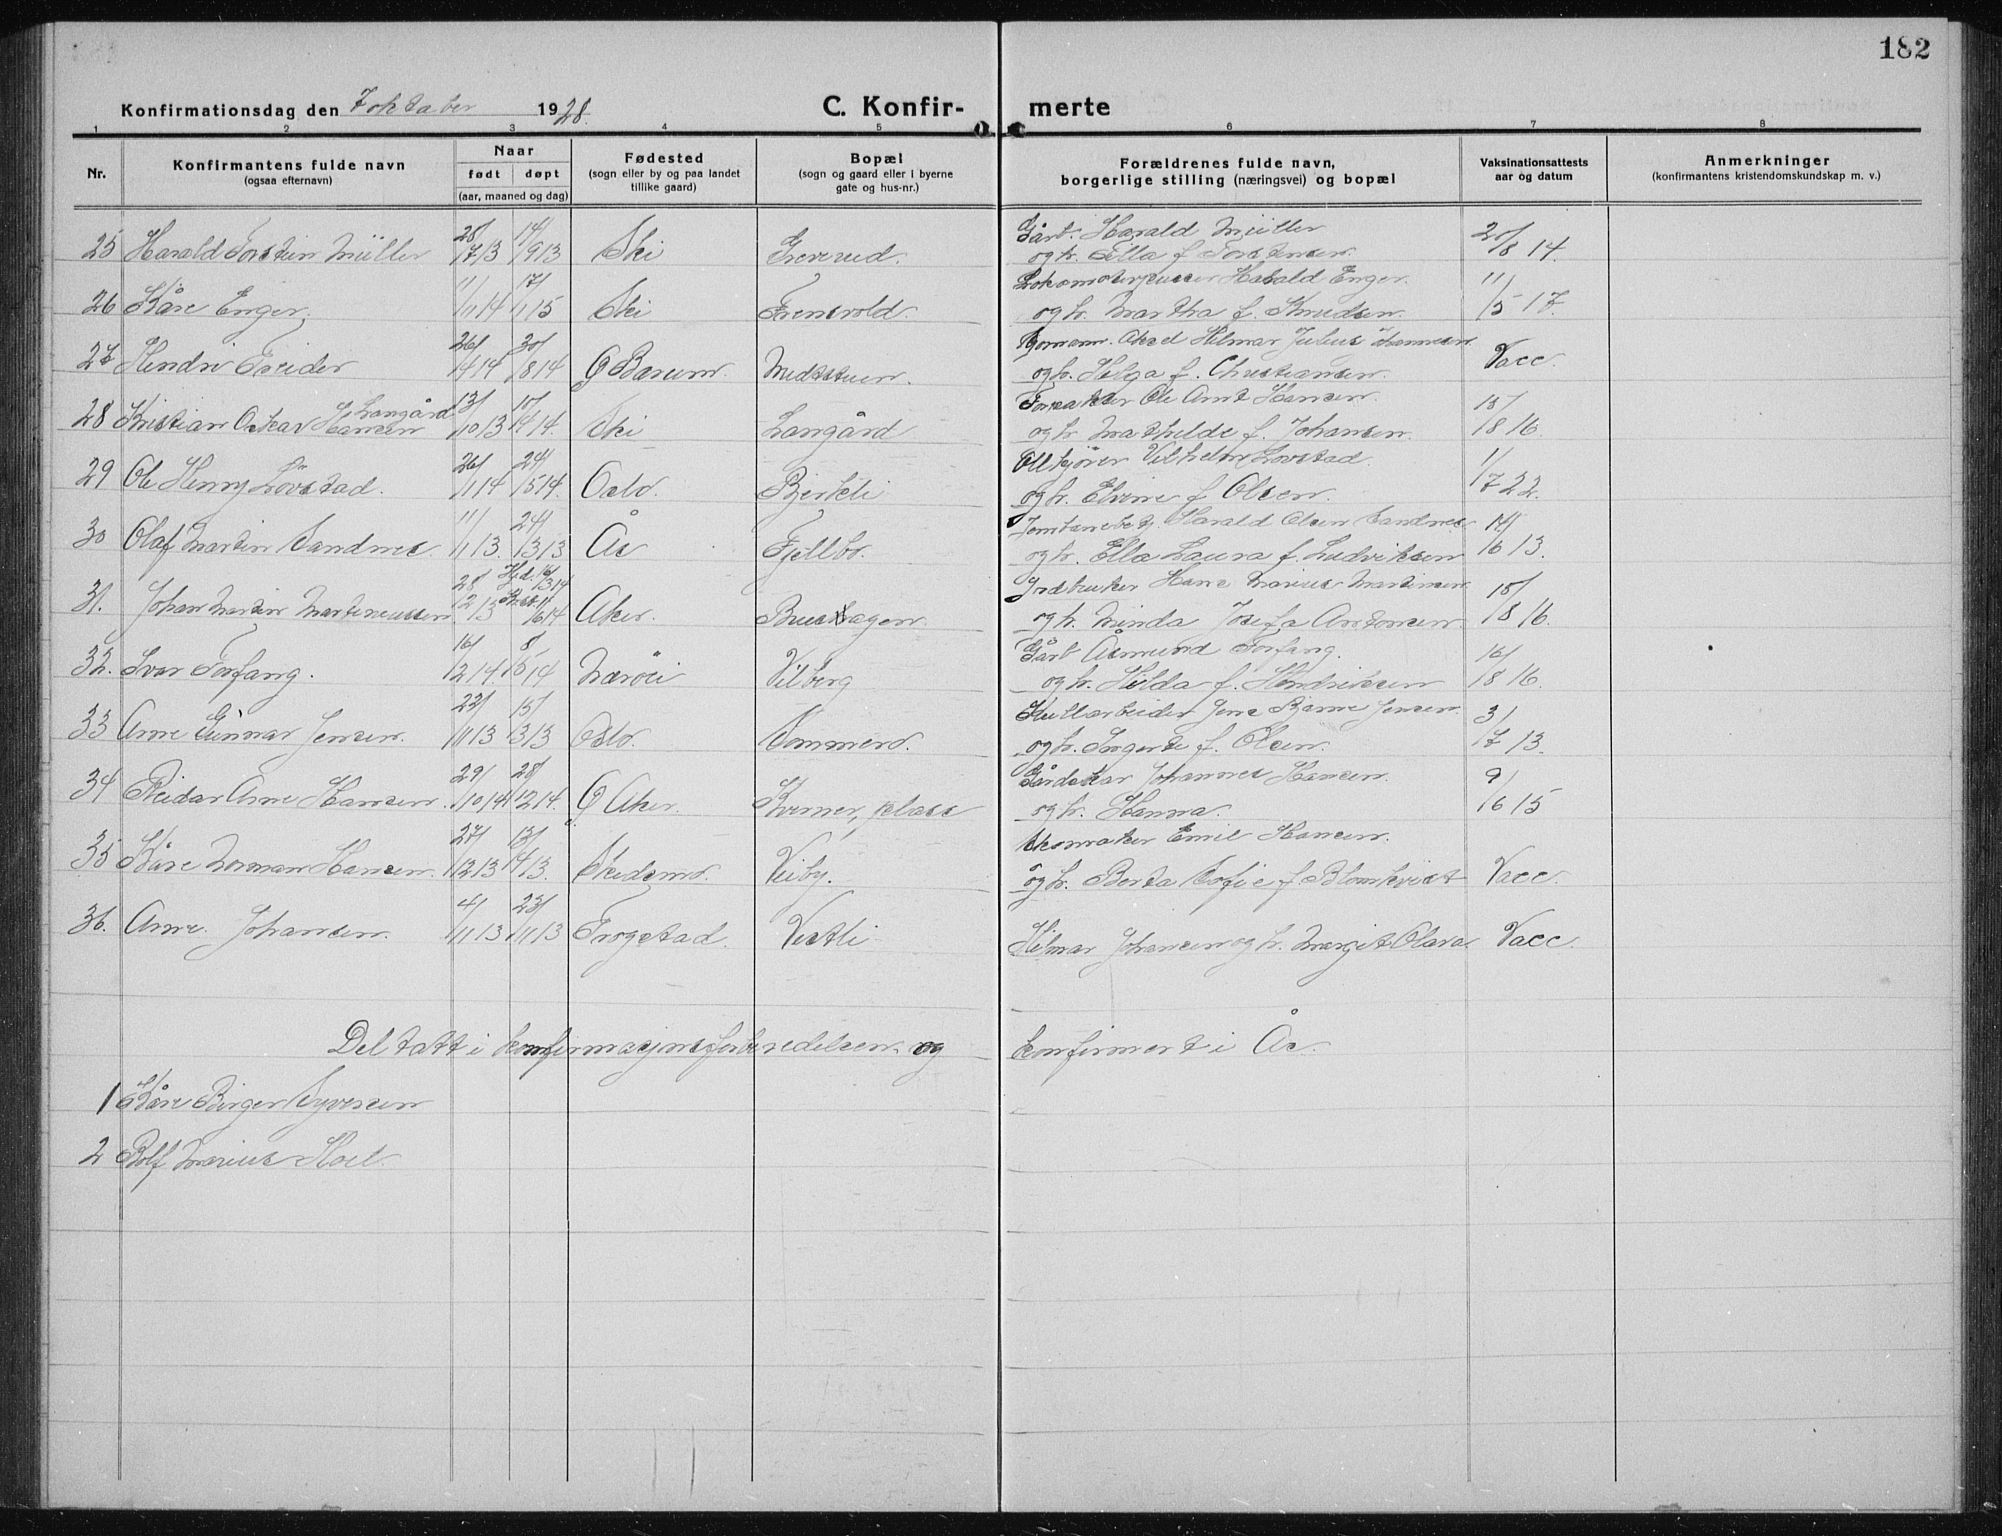 182
Konfirmationsdag den 7 oktober 1928. C. Konfir- merte
1 2 3 4 5 6 7 8
Nr. Konfirmantens fulde navn (ogsaa efternavn) Naar født døpt (aar, maaned og dag) Fødested (sogn eller by og paa landet tillike gaard) Bopæl (sogn og gaard eller i byerne gate og hus-nr.) Forældrenes fulde navn, borgerlige stilling (næringsvei) og bopæl Vaksinationsattests aar og datum Anmerkninger (konfirmantens kristendomskundskap m. v.)
25 Harald Torstein Müller 28/7 13 14/9 13 Ski Greverud. Gårb. Harald Müller
og h. Ella f. Torstensen. 20/8 14.
26 Kåre Enger. 11/1 14 17/1 15 Ski Harald Enger.
og h. Martha f. Knudsen. 11/5 17.
27 26/4 14 30/8 14 Ø Bærum. Midtstuen. Aksel Hilmar Julius
og h. Helga f. Christiansen. Vacc.
28 Kristian Oskar Hansen Langård 13/10 13 Ski Langård Ole Hansen.
og h. Mathilde f. Johansen. 18 16.
29 Ole Henry Løvstad. 26/1 14 24/5 14. Oslo. Bjerkeli Vilhelm Løvstad.
og h. Elvine f. Olsen. 1/7 22.
30 Olaf Martin Sandnes 11/1 13. 24/3 13 Ås Fjellbo. Harald Olsen Sandnes
og h. Ella Laura f. Ludviksen 14/6 13.
31. Johan Martin Martiniussen 28/12 13 Aker. Jordbruker Hans Marius Martinsen
og h. Minda Josefa Antonsen 18 16.
32. Ivar Forfang. 16/2 14. 14 Nærøi Vilberg Gårb Åsmund Forfang.
og h. Hilda f. Hendriksen 18 16.
33 Arne Gunnar Jensen. 22/1 13 15/3 13 Oslo. Sommero. Jens Bjarne Jensen.
og h. Ingerte f. Olsen. 3/7 13.
34 Reidar Arne Hansen. 29/10 14 28/12 14. Ø Aker. Kverner, plass Gårdskar Johannes Hansen.
og h. Hanna. 9/6 15
35 Kåre Norman Hansen. 27/12 13 13/4 13. Skedsmo. Veiby. Skomaker Emil Hansen.
og h. Berta Sofie f. Blomkvist Vacc.
36. Arne Johansen. 4/11 13 23/11 13 Trøgstad. Vestli Hilmar Johansen og h. Margit Olava Vacc.
Deltatt i konfirmasjonsforberedelsen og konfirmert i Ås.
1 Kåre Birger Syversen
2 Rolf Marius Hoel